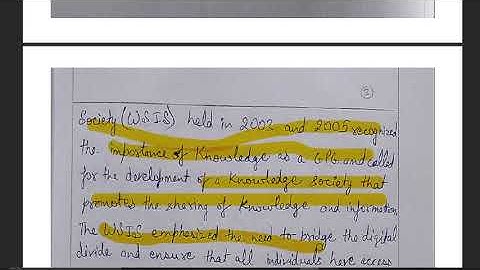 2
Society (WSIS) held in 2003 and 2005 recognized
the importance of Knowledge as a GPG and called
for the development of a Knowledge society that
promotes the sharing of Knowledge and information
The WSIS emphasized the need to bridge the digital
divide and ensure that all individuals have access